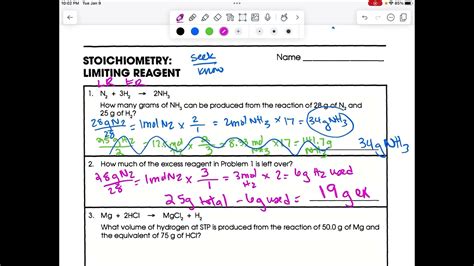 10:03 PM Tue Jan 9
85%
STOICHIOMETRY:
LIMITING REAGENT
seek
know
Name
L.R E.R
1. N₂ + 3H₂ → 2NH₃
How many grams of NH₃ can be produced from the reaction of 28 g of N₂ and
25 g of H₂?
28gN2/28 = 1molN2 x 2/1 = 2molNH3 x 17 = 34gNH3
34g NH3
2. How much of the excess reagent in Problem 1 is left over?
28gN2/28 = 1molN2 x 3/1 = 3mol H2 x 2 = 6g H2 used
25g total - 6g used = 19g ex
3. Mg + 2HCl → MgCl₂ + H₂
What volume of hydrogen at STP is produced from the reaction of 50.0 g of Mg and
the equivalent of 75 g of HCl?